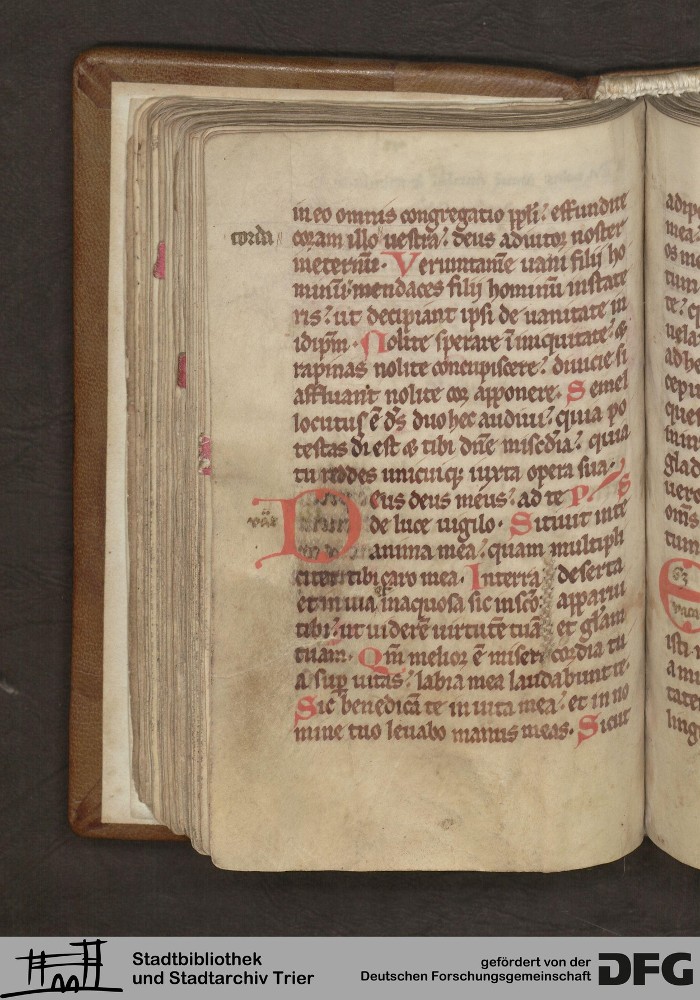 in eo omnis congregatio ppli? effundite
corda
coram illo uestra? deus adiutor noster
in eternū. Veruntamē uani filij ho
minū: mendaces filij hominū in state
ris? ut decipiant ipsi de uanitate in
idipm. Nolite sperare ī iniquitate? &
rapinas nolite concupiscere? diuicie si
affluant nolite cor apponere. Semel
locutus ē ds duo hec audiui? quia po
testas di est & tibi dne miscdia? quia
tu reddes unicuiq; iuxta opera sua. PS
Deus deus meus? ad te
de luce uigilo. Sitiuit in te
anima mea? quam multipli
citer tibi caro mea. In terra deserta
et in uia inaquosa sic in sco apparui
tibi? ut uiderē uirtutē tuā et glam
tuam. Qm melior ē misericordia tu
a sup uitas? labia mea laudabunt te.
Sic benedicā te in uita mea? et in no
mine tuo leuabo manus meas. Sicut
Stadtbibliothek
und Stadtarchiv Trier
gefördert von der
Deutschen Forschungsgemeinschaft
DFG